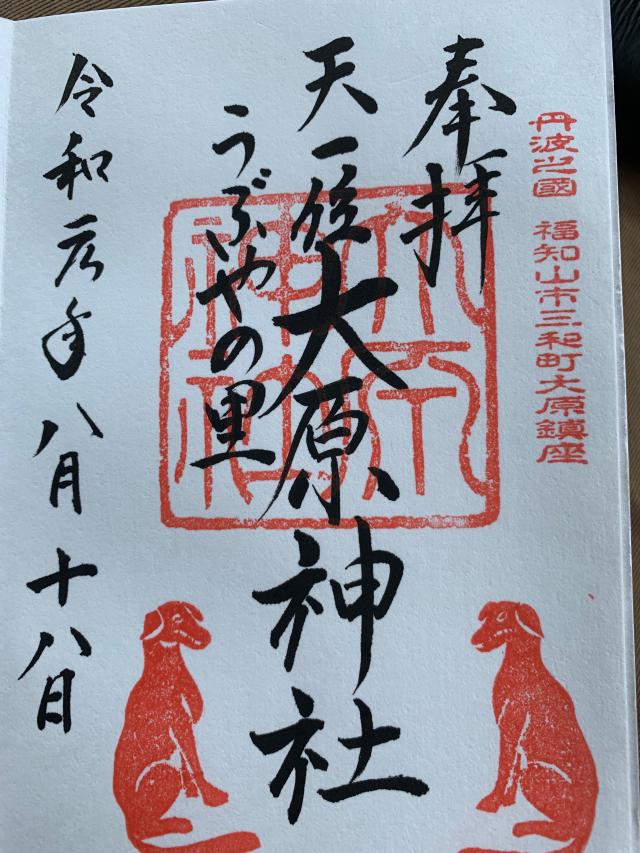 丹波之國 福知山市三和町大原鎮座
奉拝
天一位大原神社
うぶやの里
令和元年八月十八日